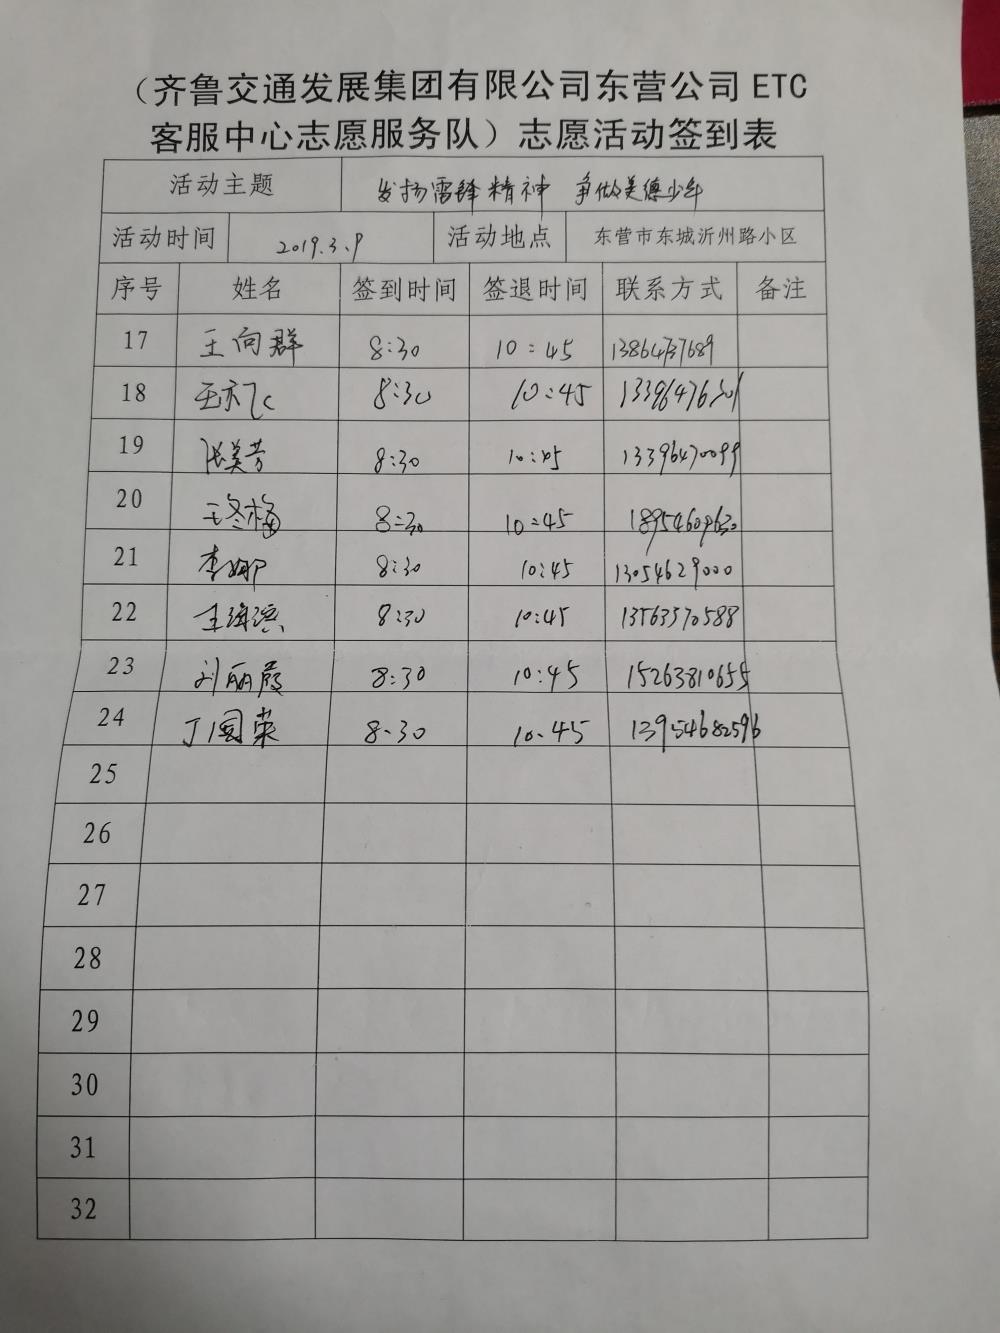 （齐鲁交通发展集团有限公司东营公司 ETC
客服中心志愿服务队）志愿活动签到表
活动主题 发扬雷锋精神 争做美德少年
活动时间 2019.3.9 活动地点 东营市东城沂州路小区
序号 姓名 签到时间 签退时间 联系方式 备注
17 王向群 8:30 10:45 13864737689
18 8:30 10:45
19 张美芳 8:30 10:45 13396470099
20 王冬梅 8:30 10:45 18954609630
21 李娜 8:30 10:45 13054629000
22 王海滨 8:30 10:45 13563370588
23 刘丽霞 8:30 10:45 15263810655
24 丁国荣 8.30 10.45 13954682596
25
26
27
28
29
30
31
32